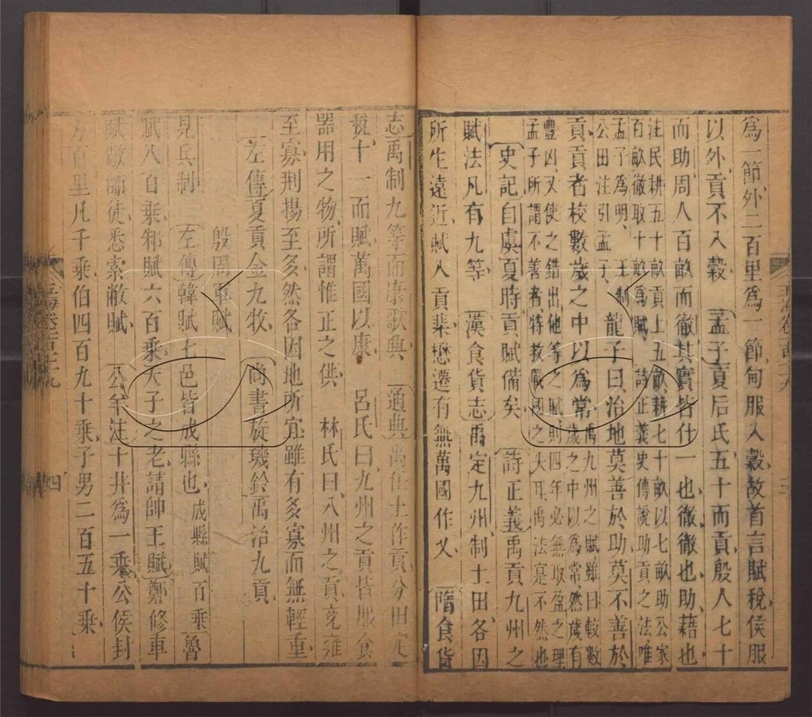 爲一節外二百里爲一節甸服入穀故首言賦稅侯服
以外貢不入穀 孟子夏后氏五十而貢殷人七十
而助周人百畝而徹其實皆什一也徹徹也助藉也
注民耕五十畝貢上五畝耕七十畝以七畝助公家
百畝徹取十畝爲賦 詩正義史傳說助貢之法唯
孟子爲明 王制
公田注引孟子 龍子曰治地莫善於助莫不善於
貢貢者校數歲之中以爲常
禹九州之賦雖曰較數
歲之中以爲常然歲有
豐凶又使之錯出他等之賦則四年必無取盈之理
孟子所謂不善者特救戰國之失耳禹法寔不然也
史記自虞夏時貢賦備矣 詩正義禹貢九州之
賦法凡有九等 漢食貨志禹定九州制土田各因
所生遠近賦入貢棐懋遷有無萬國作乂 隋食貨
志禹制九等而康歌興 通典禹任土作貢分田定
稅十一而賦萬國以康 呂氏曰九州之貢皆服食
器用之物所謂惟正之供 林氏曰八州之貢兖雍
至寡荆揚至多然各因地所宜雖有多寡而無輕重
左傳夏貢金九牧 尚書旋璣鈐禹治九貢
殷周軍賦
見兵制 左傳韓賦七邑皆成縣也 成縣賦百乘 魯
賦八百乘邾賦六百乘天子之老請帥王賦鄭修車
賦敝邑師徒悉索敝賦 公羊注十井爲一乘公侯封
方百里凡千乘伯四百九十乘子男二百五十乘